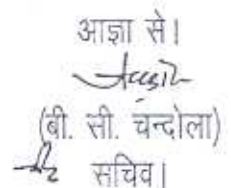 आज्ञा से।
(बी. सी. चन्दोला)
सचिव।